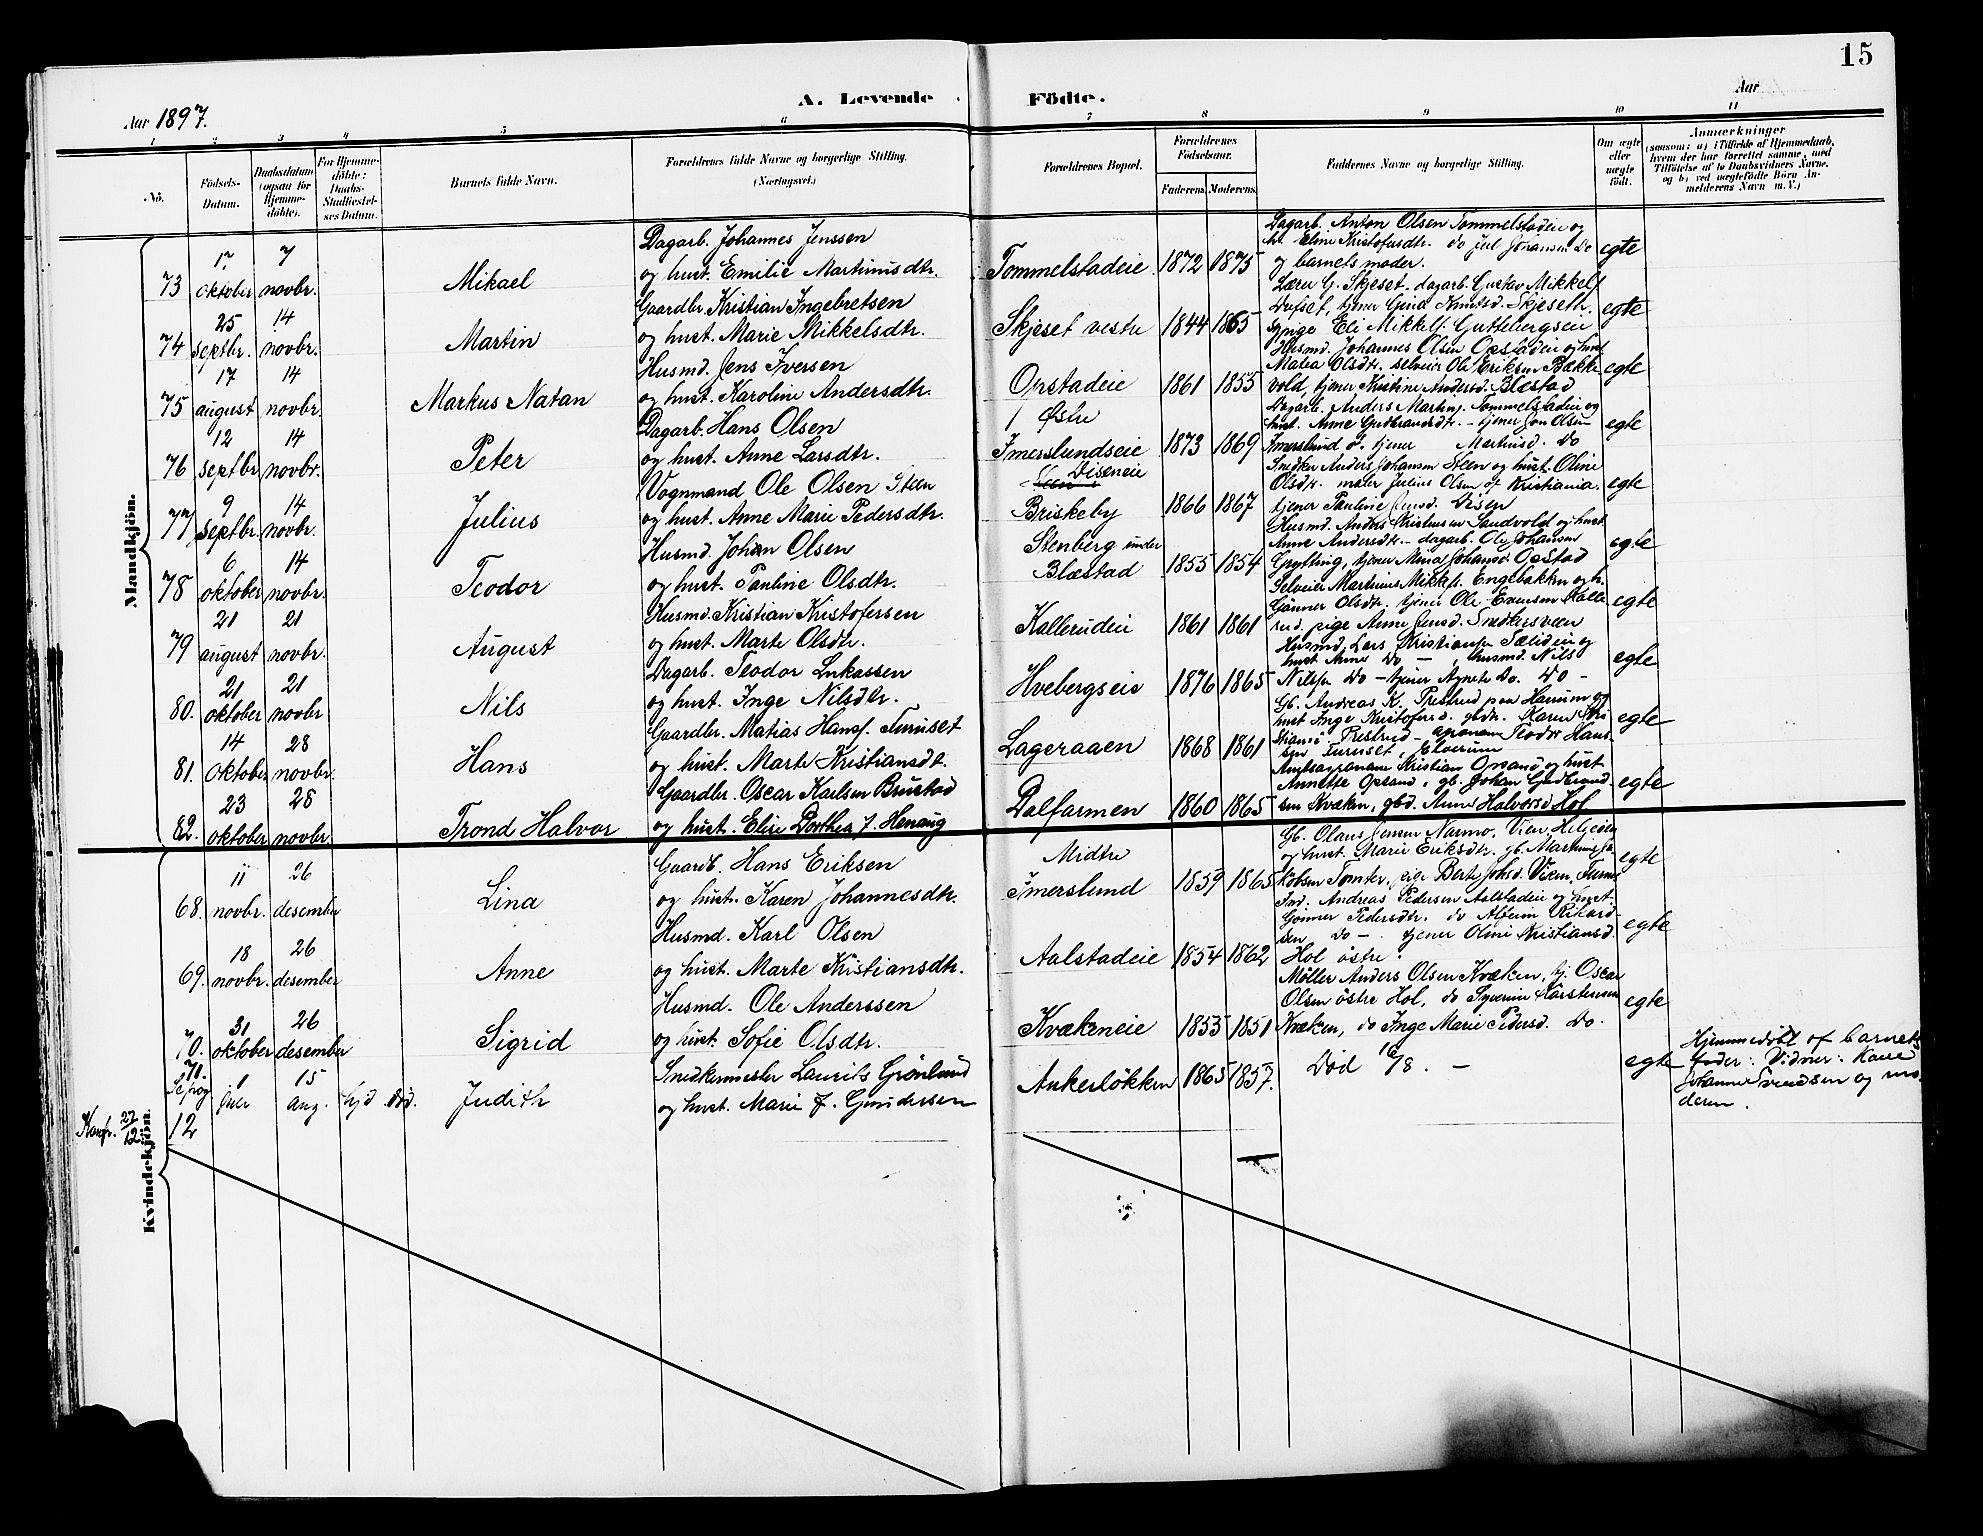 15
A. Levende Födte.
Aar 1897.
Aar
1 2 3 4 5 6 7 8 9 10 11
No.
Födsels-Datum.
Daabsdatum (ogsaa for Hjemmedöbte).
For Hjemmedöbte: Daabs-Stadfæstelses Datum.
Barnets fulde Navn.
Forældrenes fulde Navne og borgerlige Stilling. (Næringsvei.)
Forældrenes Bopæl.
Forældrenes Födselsaar.
Faderens. Moderens.
Faddernes Navne og borgerlige Stilling.
Om ægte eller uægte födt.
Anmærkninger (saasom: a) i Tilfælde af Hjemmedaab, hvem der har forrettet samme, med Tilföielse af to Daabsvidners Navne. og b) ved uægtefödte Börn Anmelderens Navn m. V.)
Mandkjön.
73 17 oktober 7 novbr. Mikael
Dagarb. Johannes Jenssen
og hust. Emilie Martinusdtr.
Tommelstadeie 1872 1875
Dagarb. Anton Olsen Tommelstadeie og
hr. Eline Kristofersdtr. do Juel Johansen Do
og barnets moder.
egte
74 25 septbr. 14 novbr. Martin
Gaardbr. Kristian Ingebretsen
og hust. Marie Mikkelsdtr.
Skjeset vestre 1844 1865
Lærer G. Skjeset. dagarb. Gustav Mikkels.
tjener Skjeseth.
Eli Mikkels. Guttebergseie
egte
75 17 august 14 novbr. Markus Natan
Husmd. Jens Iversen
og hust. Karoline Andersdtr.
Opstadeie 1861 1855
Husmd. Johannes Olsen Opstadeie og hust
Matea Olsdtr. selveier Ole Eriksen Bække
vold, tjener Kristine Andersd. Blæstad
egte
76 12 septbr. 14 novbr. Peter
Dagarb. Hans Olsen
og hust. Anne Larsdtr.
Østre
Imerslundseie 1873 1869
Dagarb. Anders Martins. Tommelstadeie og
hust. Anne Gudbrandsdtr. – tjener Jon Olsen
Imerslund ö. tjener Martinsd. Do
egte
77 9 septbr. 14 novbr. Julius
Vognmand Ole Olsen Steen
og hust. Anne Marie Pedersdtr.
Diseneie
Briskeby 1866 1867
Snedker Anders Johansen Steen og hust. Oline
Olsdtr. maler Julius Olsen af Kristiania.
tjener Pauline Jensd. Disen
egte
78 6 oktober 14 novbr. Teodor
Husmd. Johan Olsen
og hust. Pauline Olsdtr.
Stenberg under
Blæstad 1855 1854
Husmd. Anders Kristensen Sandvold og hust
Anne Andersdtr. – dagarb. Ole Johansen
Grytting, tjener Mina Johansd. Opstad
egte
79 21 august 21 novbr. August
Husmd. Kristian Kristofersen
og hust. Marte Olsdtr.
Kallerudeie 1861 1861
Selveier Martinus Mikkels. Engebakken og h.
Gönner Olsdtr. tjener Ole Evensen Kalle
rud, pige Anne Jensd. Snekkersveen
egte
80. 21 oktober 21 novbr Nils
Dagarb. Teodor Lukassen
og hust. Inge Nilsdtr.
Hvebergseie 1876 1865
Husmd. Lars Kristians. Sælideie og
hust Anne Do – husmd. Nils
Nilssen Do – tjener Agnete Do. Do –
egte
81. 14 oktober 28 novbr. Hans
Gaardbr. Matias Hans. Furuset
og hust. Marte Kristiansdt.
Lageraaen 1868 1861
Gb. Andreas K. Frestrud paa Hamum og
hust Inge Kristofersd. gbdr. Karen Kri
stiansd Frestrud – agronom Teodor Han
sen Furuset, Elverum
egte
82. 23 oktober 28 novbr. Trond Halvor
Gaardbr. Oscar Karlsen Brustad
og hust. Elise Dorthea f. Henaug
Dalfarmen 1860 1865
Amtsagronom Kristian Opsand og hust
Annette Opsand, gb. Johan Gudbrand
sen Kvæken, gbd. Anne Halvorsd Hol
egte
Kvindekjön.
68. 11 novbr. 26 desember Lina
Gaardb. Hans Eriksen
og hust. Karen Johannesdtr.
Midtre
Imerslund 1859 1865
Gb. Olaus Jensen Narmo, Vien, Heljeöen
og hust. Marie Eriksdtr. gb. Martinus Ja-
kobsen Tomter, pige Berte Johsd. Vien, Furnes
egte
69. 18 novbr. 26 desember Anne
Husmd. Karl Olsen
og hust. Marte Kristiansdtr.
Aalstadeie 1854 1862
Ind. Andreas Pedersen Aalstadeie og hust.
Gönner Pedersdtr. do Alfsten Rikard-
sen Do – tjener Oline Kristiansd.
Hol östre.
egte
70. 31 oktober 26 desember Sigrid
Husmd. Ole Anderssen
og hust. Sofie Olsdtr.
Kvækeneie 1853 1851
Möller Anders Olsen Kvæken, tj. Oscar
Olsen östre Hol, do Syverine Karstensen
Kvæken, do Inge Marie Pedersd. Do.
egte
71. 1 juli 15 aug. hjd. död. Judith
Snedkermester Laurits Grönlund
og hust. Marie f. Gundersen
Ankerlökken 1865 1857.
Död 16/8. –
egte
Hjemmedöbt af barnets
fader: Vidner: Kaue
Johanne Svendsen og mo
deren.
12
Konfr. 27/12